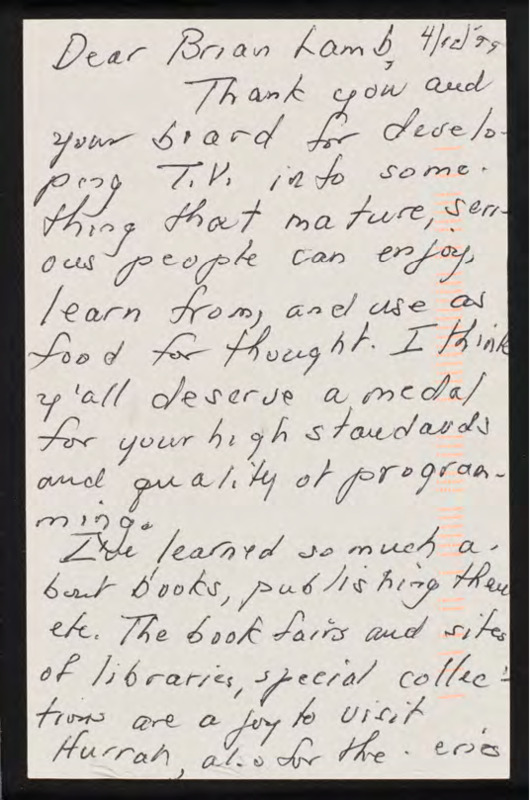 Dear Brian Lamb, 4/12/99
Thank you and
your board for develo-
ping T.V. into some-
thing that mature, seri-
ous people can enjoy,
learn from, and use as
food for thought. I think
y'all deserve a medal
for your high standards
and quality of program-
ming.
I've learned so much a-
bout books, publishing them
etc. The book fairs and sites
of libraries, special collec-
tions are a joy to visit
Hurrah, also for the